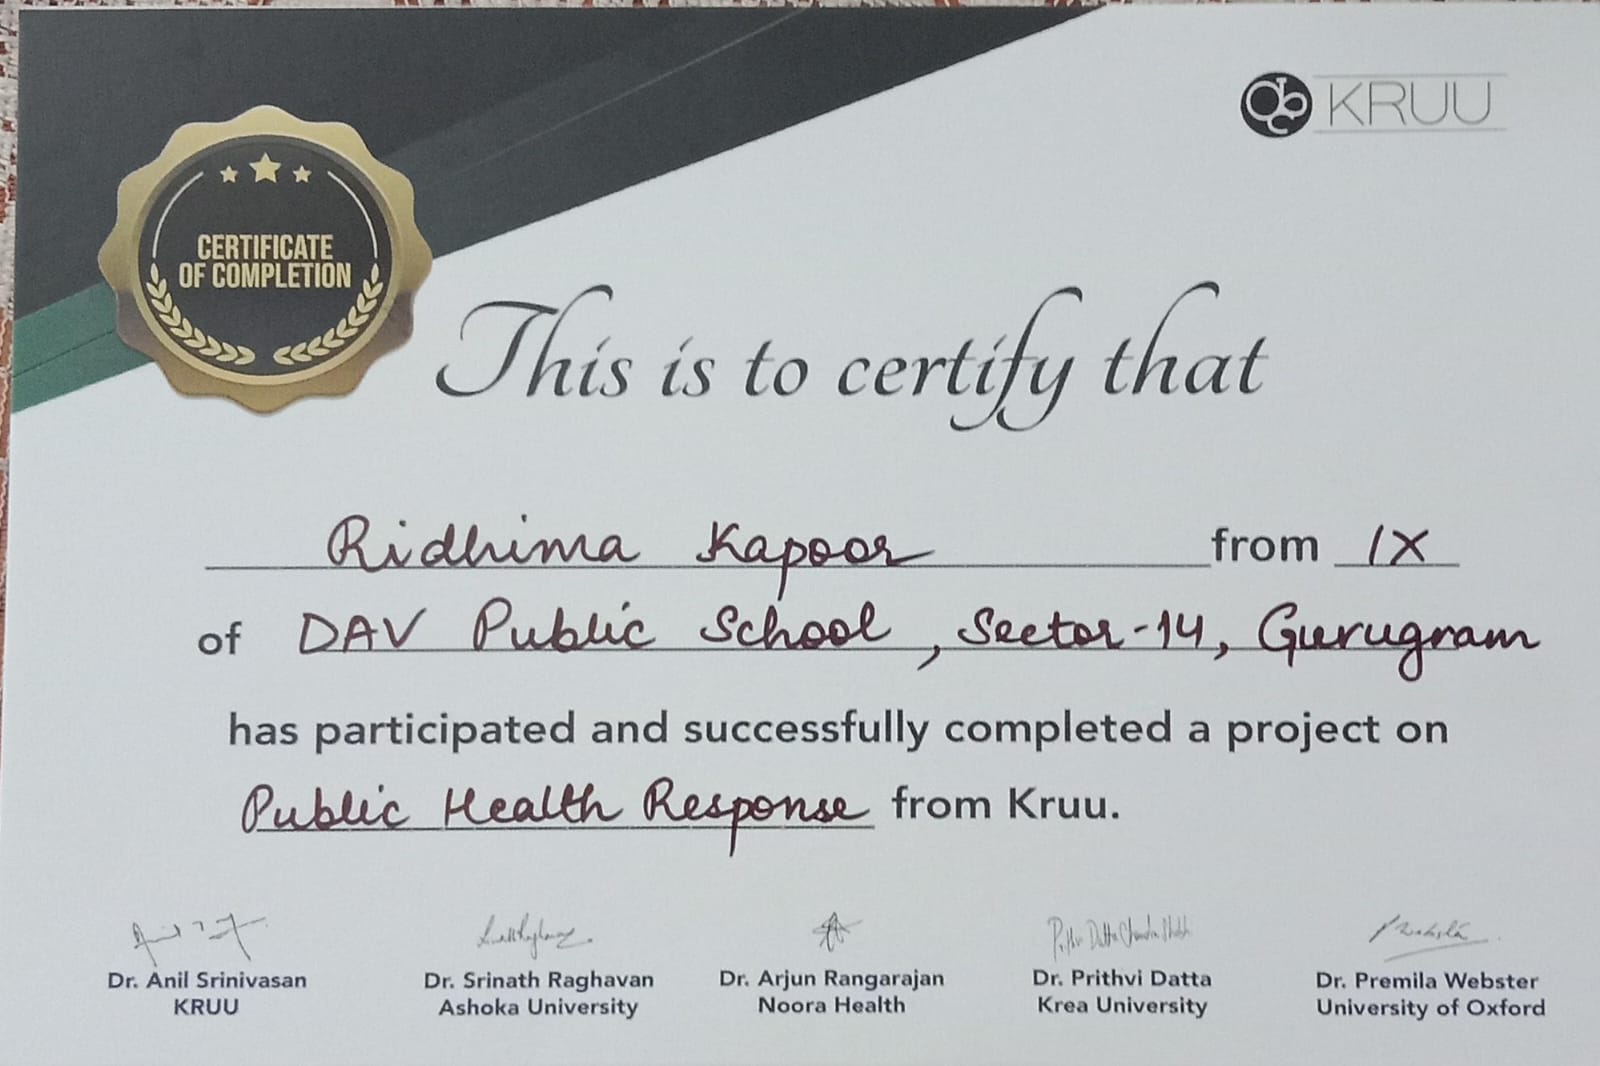 KRUU
CERTIFICATE
OF COMPLETION
This is to certify that
Ridhima Kapoor from IX
of DAV Public School, Sector-14, Gurugram
has participated and successfully completed a project on
Public Health Response from Kruu.
Dr. Anil Srinivasan
KRUU
Dr. Srinath Raghavan
Ashoka University
Dr. Arjun Rangarajan
Noora Health
Dr. Prithvi Datta
Krea University
Dr. Premila Webster
University of Oxford